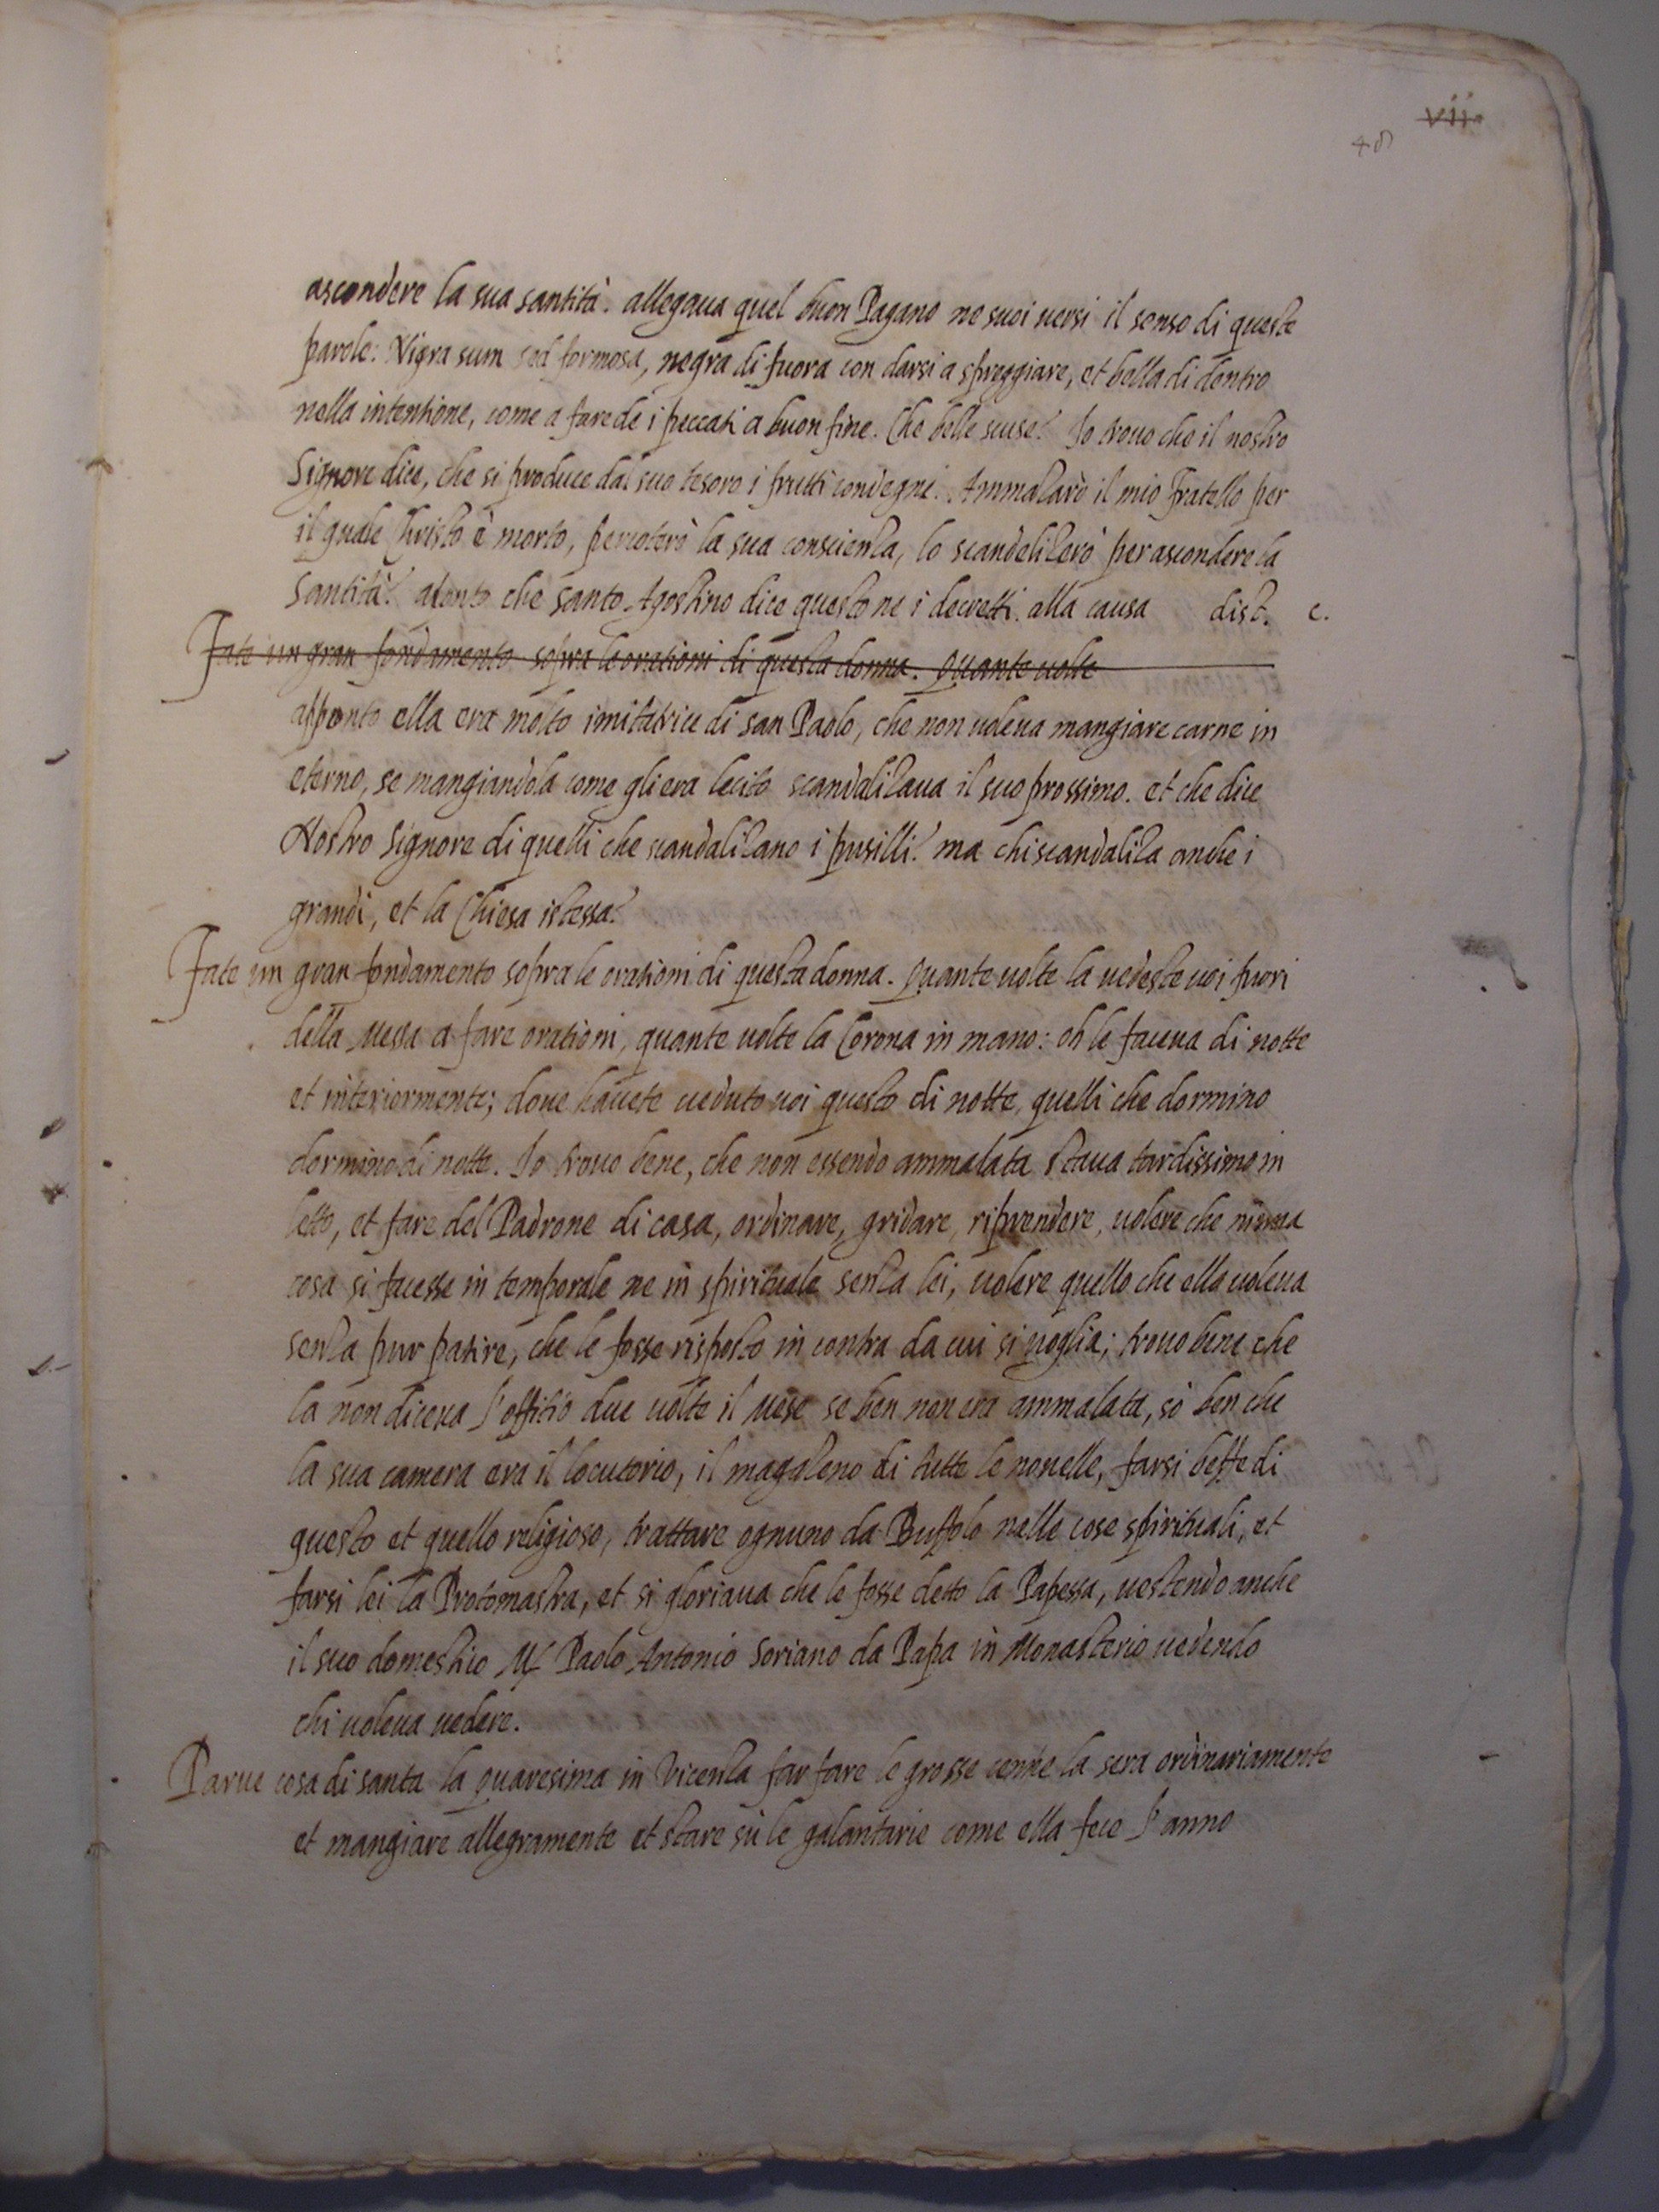 vii.
48
ascondere la sua santità. allegaua quel buon Pagano ne suoi uersi il senso di queste
parole: Nigra sum sed formosa, negra di fuora con darsi a spreggiare, et bella di dentro
nella intentione, come a fare de i peccati a buon fine. Che belle scuse! Io trouo che il nostro
Signore dice, che si produce dal suo tesoro i frutti condegni. Ammalarò il mio Fratello per
il quale Christo è morto, percoterò la sua conscienza, lo scandelizerò per ascondere la
santità? atento che santo Agostino dice questo ne i decretti. alla causa dist. c.
Fate un gran fondamento sopra le orationi di questa donna. Quante uolte
apponto ella era molto imitatrice di san Paolo, che non uoleua mangiare carne in
eterno, se mangiandola come gli era lecito scandalizaua il suo prossimo. et che dice
Nostro Signore di quelli che scandalizano i pusilli? ma chi scandaliza anche i
grandi, et la Chiesa istessa?
Fate un gran fondamento sopra le orationi di questa donna. Quante uolte la uedeste uoi fuori
della Messa a fare orationi, quante uolte la Corona in mano: oh le faceua di notte
et interiormente; doue hauete ueduto uoi questo di notte, quelli che dormino
dormino di notte. Io trouo bene, che non essendo ammalata staua tardissimo in
letto, et fare del Padrone di casa, ordinare, gridare, riprendere, uolere che niuna
cosa si facesse in temporale ne in spirituale senza lei, uolere quello che ella uoleua
senza pur patire, che le fosse risposto in contra da cui si uoglia; trouo bene che
la non diceua l'offitio due uolte il Mese se ben non era ammalata, sò ben che
la sua camera era il locutorio, il magazeno di tutte le nouelle, farsi beffe di
questo et quello religioso, trattare ognuno da Buffolo nelle cose spirituali, et
farsi lei la Protomastra, et si gloriaua che le fosse detto la Papessa, uestendo anche
il suo domestico M. Paolo Antonio Soriano da Papa in Monasterio uedendo
chi uoleua uedere.
Parue cosa di santa la quaresima in Vicenza far fare le grosse cenne la sera ordinariamente
et mangiare allegramente et stare sù le galantarie come ella fece l'anno